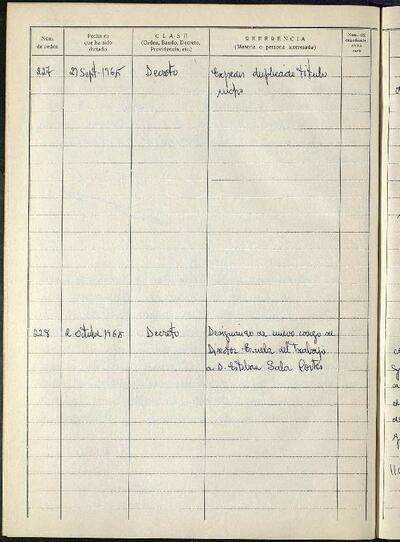 Núm. de orden
Fecha en que ha sido dictado
CLASE
(Orden, Bando, Decreto, Providencia, etc.)
REFERENCIA
(Materia o persona interesada)
Núm. del expediente
227 27 Sept. 1965 Decreto Expedir duplicado título
nicho
228 2 Octubre 1965 Decreto Designando de nuevo cargo de
Director Escuela del Trabajo
a D. Esteban Sala Cortés